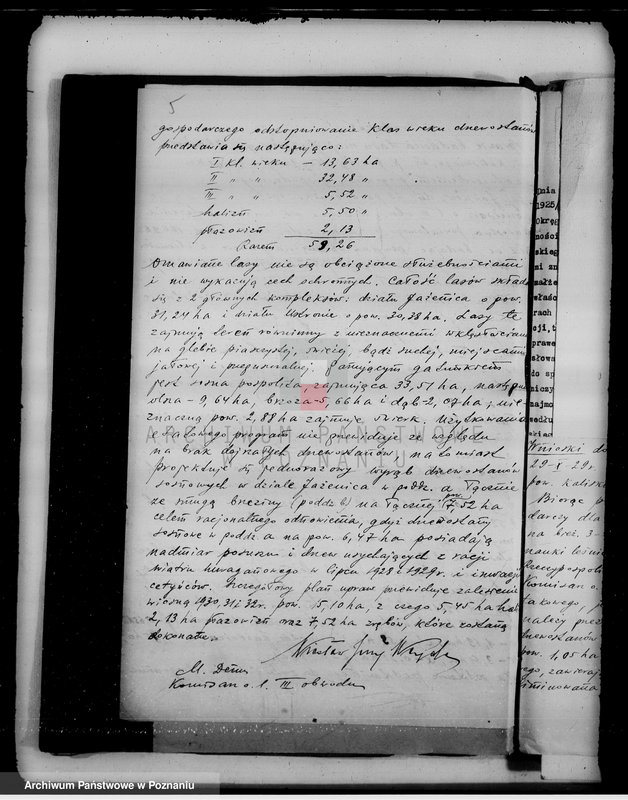 5
gospodarczego odstopniowanie klas wieku drzewostanów
przedstawia się następująco:
I kl. wieku — 13,63 ha
II " " 32,48 "
III " " 5,52 "
halizn 5,50 "
płazowizn 2,13
Razem 59,26
Omawiane lasy nie są obciążone służebnościami
i nie wykazują cech ochronnych. Całość lasów składa
się z 2 głównych kompleksów: działu Jasienica o pow.
31,24 ha i działu Ustronie o pow. 30,38 ha. Lasy te
zajmują teren równinny z nieznacznemi wklęsłościami
na glebie piaszczystej, świeżej, bądź suchej, miejscami
jałowej i próchnicznej. Panującym gatunkiem
jest sosna pospolita, zajmująca 33,51 ha, następnie
olsza - 9,64 ha, brzoza - 5,66 ha i dąb - 2,07 ha; nie-
znaczną pow. 2,88 ha zajmuje świerk. Użytkowania
etatowego program nie przewiduje ze względu
na brak dojrzałych drzewostanów, natomiast
projektuje się jednorazowy wyrąb drzewostanów
sosnowych w dziale Jasienica w poddz. a łącznie
ze smugą brzeziny (poddz. b) na łącznej pow. 7,52 ha
celem racjonalnego odnowienia, gdyż drzewostany
sosnowe w poddz. a na pow. 6,47 ha posiadają
nadmiar posuszu i drzew usychających z racji
wiatru huraganowego w lipcu 1928 i 1929 r. i inwazji
cetyńców. Szczegółowy plan upraw przewiduje zalesienie
wiosną 1930, 31 i 32 r. pow. 15,10 ha, z czego 5,45 ha hal.
2,13 ha płazowizn oraz 7,52 ha zrębów, które zostaną
dokonane.
Komisarz o. l. III obwodu
dnia
1925,
Okręg
ności
skieg
ni zn
małte
właśc
rach
cji, t
prawe
słowa
do sp
niczy
najmo
wedłu
Wnioski do
29-X-29 r.
pow. kaliski
Biorąc p
darczy dla
na brzż. 3-
nauki leśnie
Rzeczypospoli
Komisarz o.
takowego, j
należy prze
drzewostanów
pow. 1,05 ha
ARCHIWUM PAŃSTWOWE
W POZNANIU
Archiwum Państwowe w Poznaniu